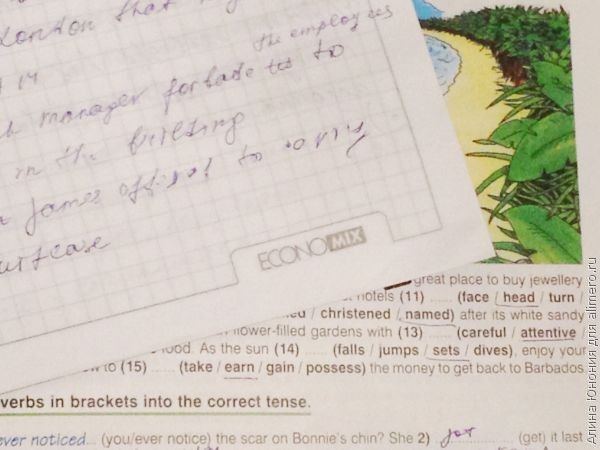 London that
the employees
manager forbade to
in the building
James offered to carry
suitcase
ECONOMIX
great place to buy jewellery
hotels (11) ..... (face / head / turn /
/ christened / named) after its white sandy
flower-filled gardens with (13) ..... (careful / attentive
food. As the sun (14) ..... (falls / jumps / sets / dives), enjoy your
to (15) ..... (take / earn / gain / possess) the money to get back to Barbados.
verbs in brackets into the correct tense.
ever noticed... (you/ever notice) the scar on Bonnie's chin? She 2) got (get) it last
Алина Юнония для alimero.ru